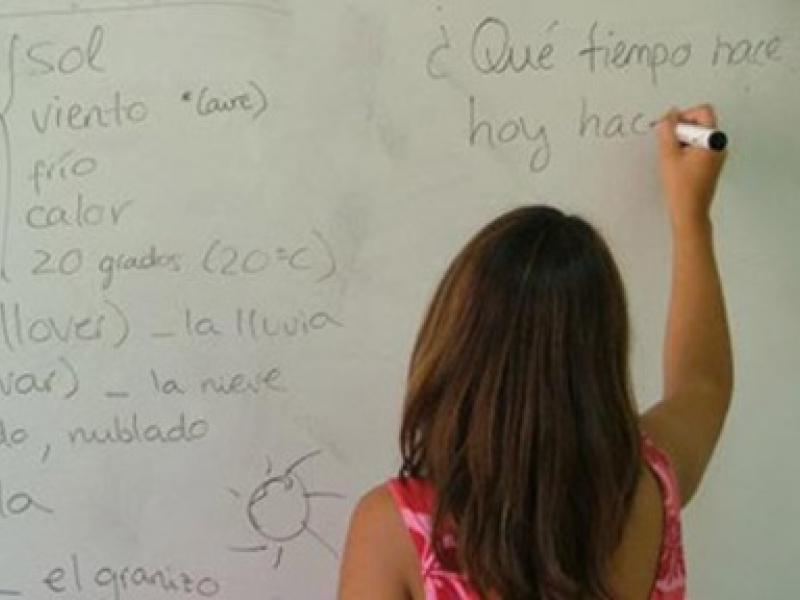 sol
viento *(aire)
frío
calor
20 grados (20°C)
llover) - la lluvia
var) - la nieve
do, nublado
la
- el granizo
¿Qué tiempo hace
hoy hac